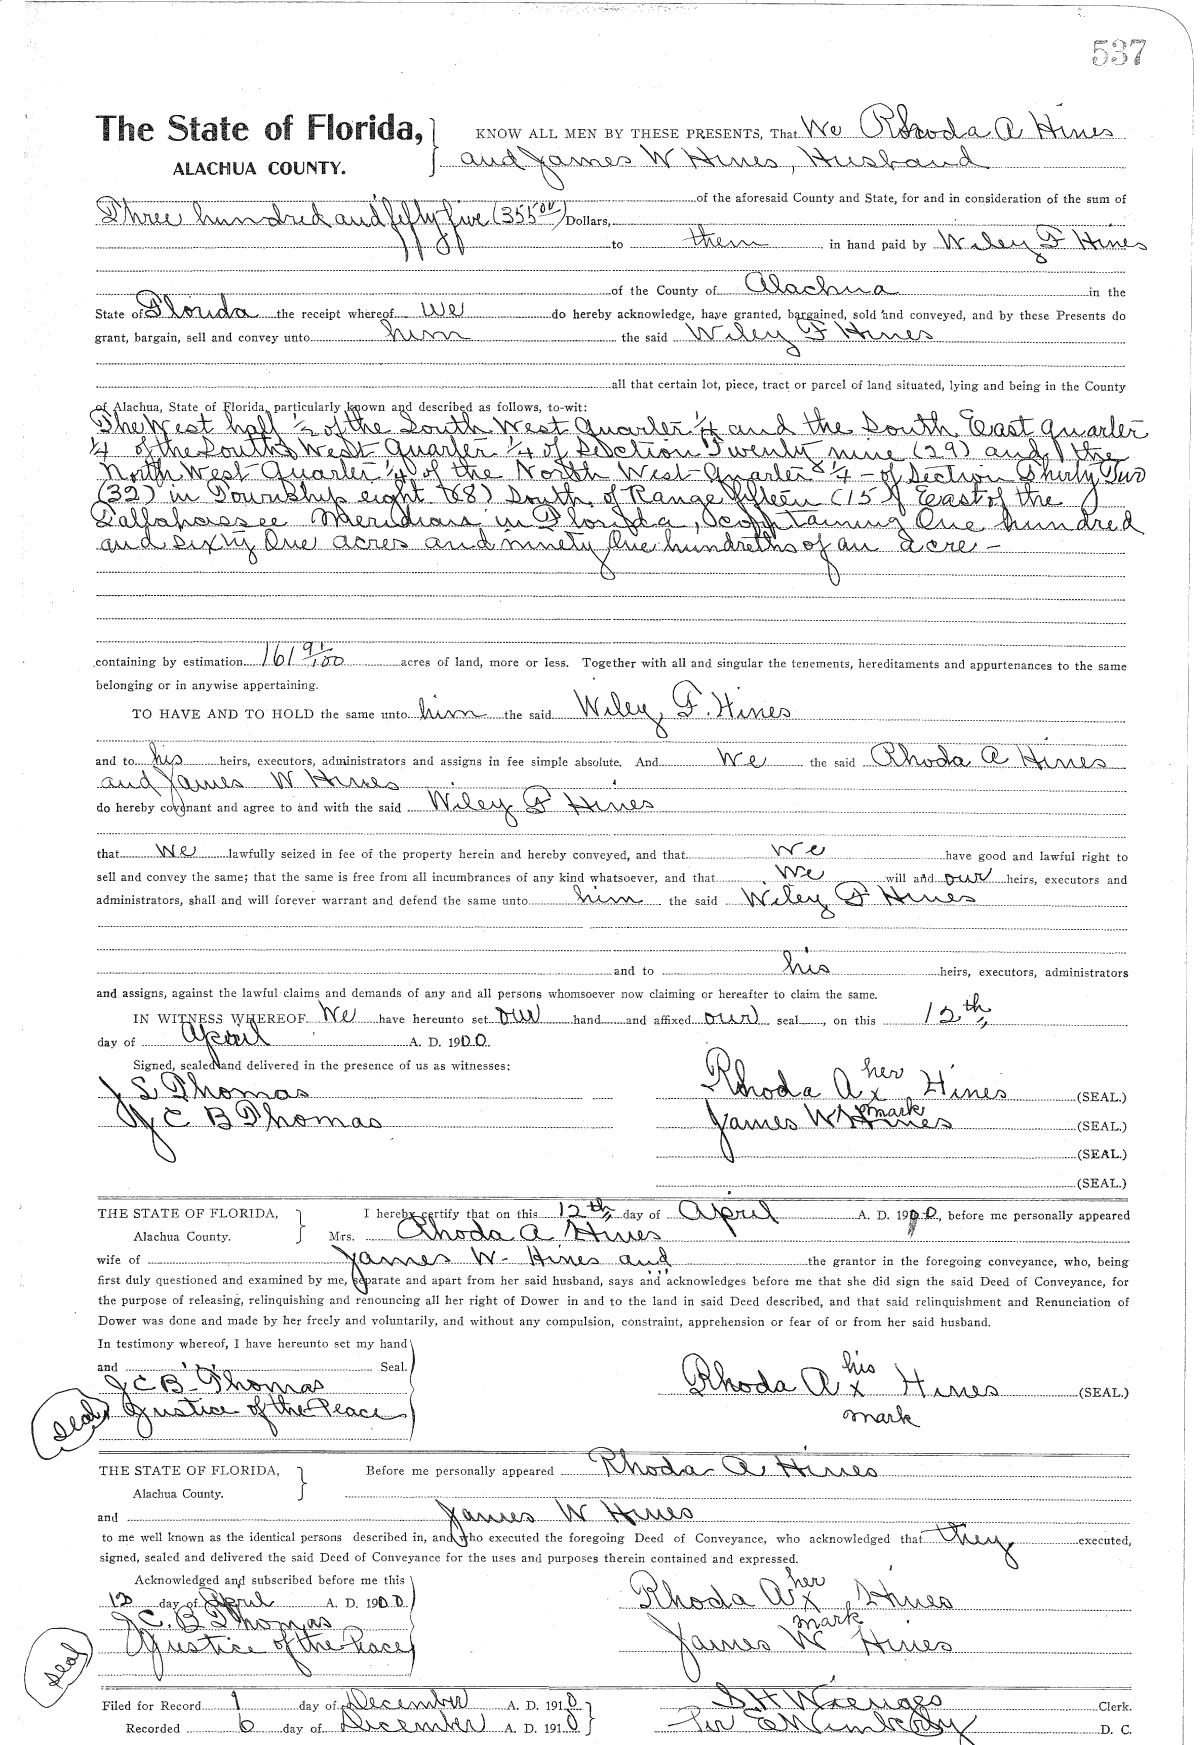 537
The State of Florida, KNOW ALL MEN BY THESE PRESENTS, That We Rhoda A Hines
ALACHUA COUNTY. and James W Hines, Husband
of the aforesaid County and State, for and in consideration of the sum of
Three hundred and fifty five (355 00) Dollars,
to them in hand paid by Wiley F Hines
of the County of Alachua in the
State of Florida the receipt whereof we do hereby acknowledge, have granted, bargained, sold and conveyed, and by these Presents do
grant, bargain, sell and convey unto him the said Wiley F Hines
all that certain lot, piece, tract or parcel of land situated, lying and being in the County
of Alachua, State of Florida, particularly known and described as follows, to-wit:
The West half 1/2 of the South West Quarter 1/4 and the South East quarter
1/4 of the South West Quarter 1/4 of Section Twenty nine (29) and the
North West Quarter 1/4 of the North West Quarter 1/4 - of Section Thirty Two
(32) in Township eight (8) South of Range fifteen (15) East of the
Tallahassee Meridian in Florida, containing One hundred
and sixty One acres and ninety One hundreths of an acre -
containing by estimation 161 91/100 acres of land, more or less. Together with all and singular the tenements, hereditaments and appurtenances to the same
belonging or in anywise appertaining.
TO HAVE AND TO HOLD the same unto him the said Wiley F. Hines
and to his heirs, executors, administrators and assigns in fee simple absolute. And We the said Rhoda A Hines
and James W Hines
do hereby covenant and agree to and with the said Wiley F Hines
that we lawfully seized in fee of the property herein and hereby conveyed, and that we have good and lawful right to
sell and convey the same; that the same is free from all incumbrances of any kind whatsoever, and that we will and our heirs, executors and
administrators, shall and will forever warrant and defend the same unto him the said Wiley F Hines
and to his heirs, executors, administrators
and assigns, against the lawful claims and demands of any and all persons whomsoever now claiming or hereafter to claim the same.
IN WITNESS WHEREOF We have hereunto set our hand and affixed our seal, on this 12th,
day of April A. D. 1900.
Signed, sealed and delivered in the presence of us as witnesses:
J S Thomas Rhoda A her x mark Hines (SEAL.)
J C B Thomas James W Hines (SEAL.)
(SEAL.)
(SEAL.)
THE STATE OF FLORIDA, I hereby certify that on this 12th, day of April A. D. 1900, before me personally appeared
Alachua County. Mrs. Rhoda A Hines
wife of James W- Hines and the grantor in the foregoing conveyance, who, being
first duly questioned and examined by me, separate and apart from her said husband, says and acknowledges before me that she did sign the said Deed of Conveyance, for
the purpose of releasing, relinquishing and renouncing all her right of Dower in and to the land in said Deed described, and that said relinquishment and Renunciation of
Dower was done and made by her freely and voluntarily, and without any compulsion, constraint, apprehension or fear of or from her said husband.
In testimony whereof, I have hereunto set my hand
and Seal.
J C B Thomas Rhoda A his x mark Hines (SEAL.)
seal Justice of the Peace
THE STATE OF FLORIDA, Before me personally appeared Rhoda A Hines
Alachua County.
and James W Hines
to me well known as the identical persons described in, and who executed the foregoing Deed of Conveyance, who acknowledged that they executed,
signed, sealed and delivered the said Deed of Conveyance for the uses and purposes therein contained and expressed.
Acknowledged and subscribed before me this
12 day of April A. D. 1900 Rhoda A her x mark Hines
J C. B Thomas
seal Justice of the Peace James W Hines
Filed for Record 1 day of December A. D. 1910 S H Wienges Clerk.
Recorded 6 day of December A. D. 1910 Per D. C.